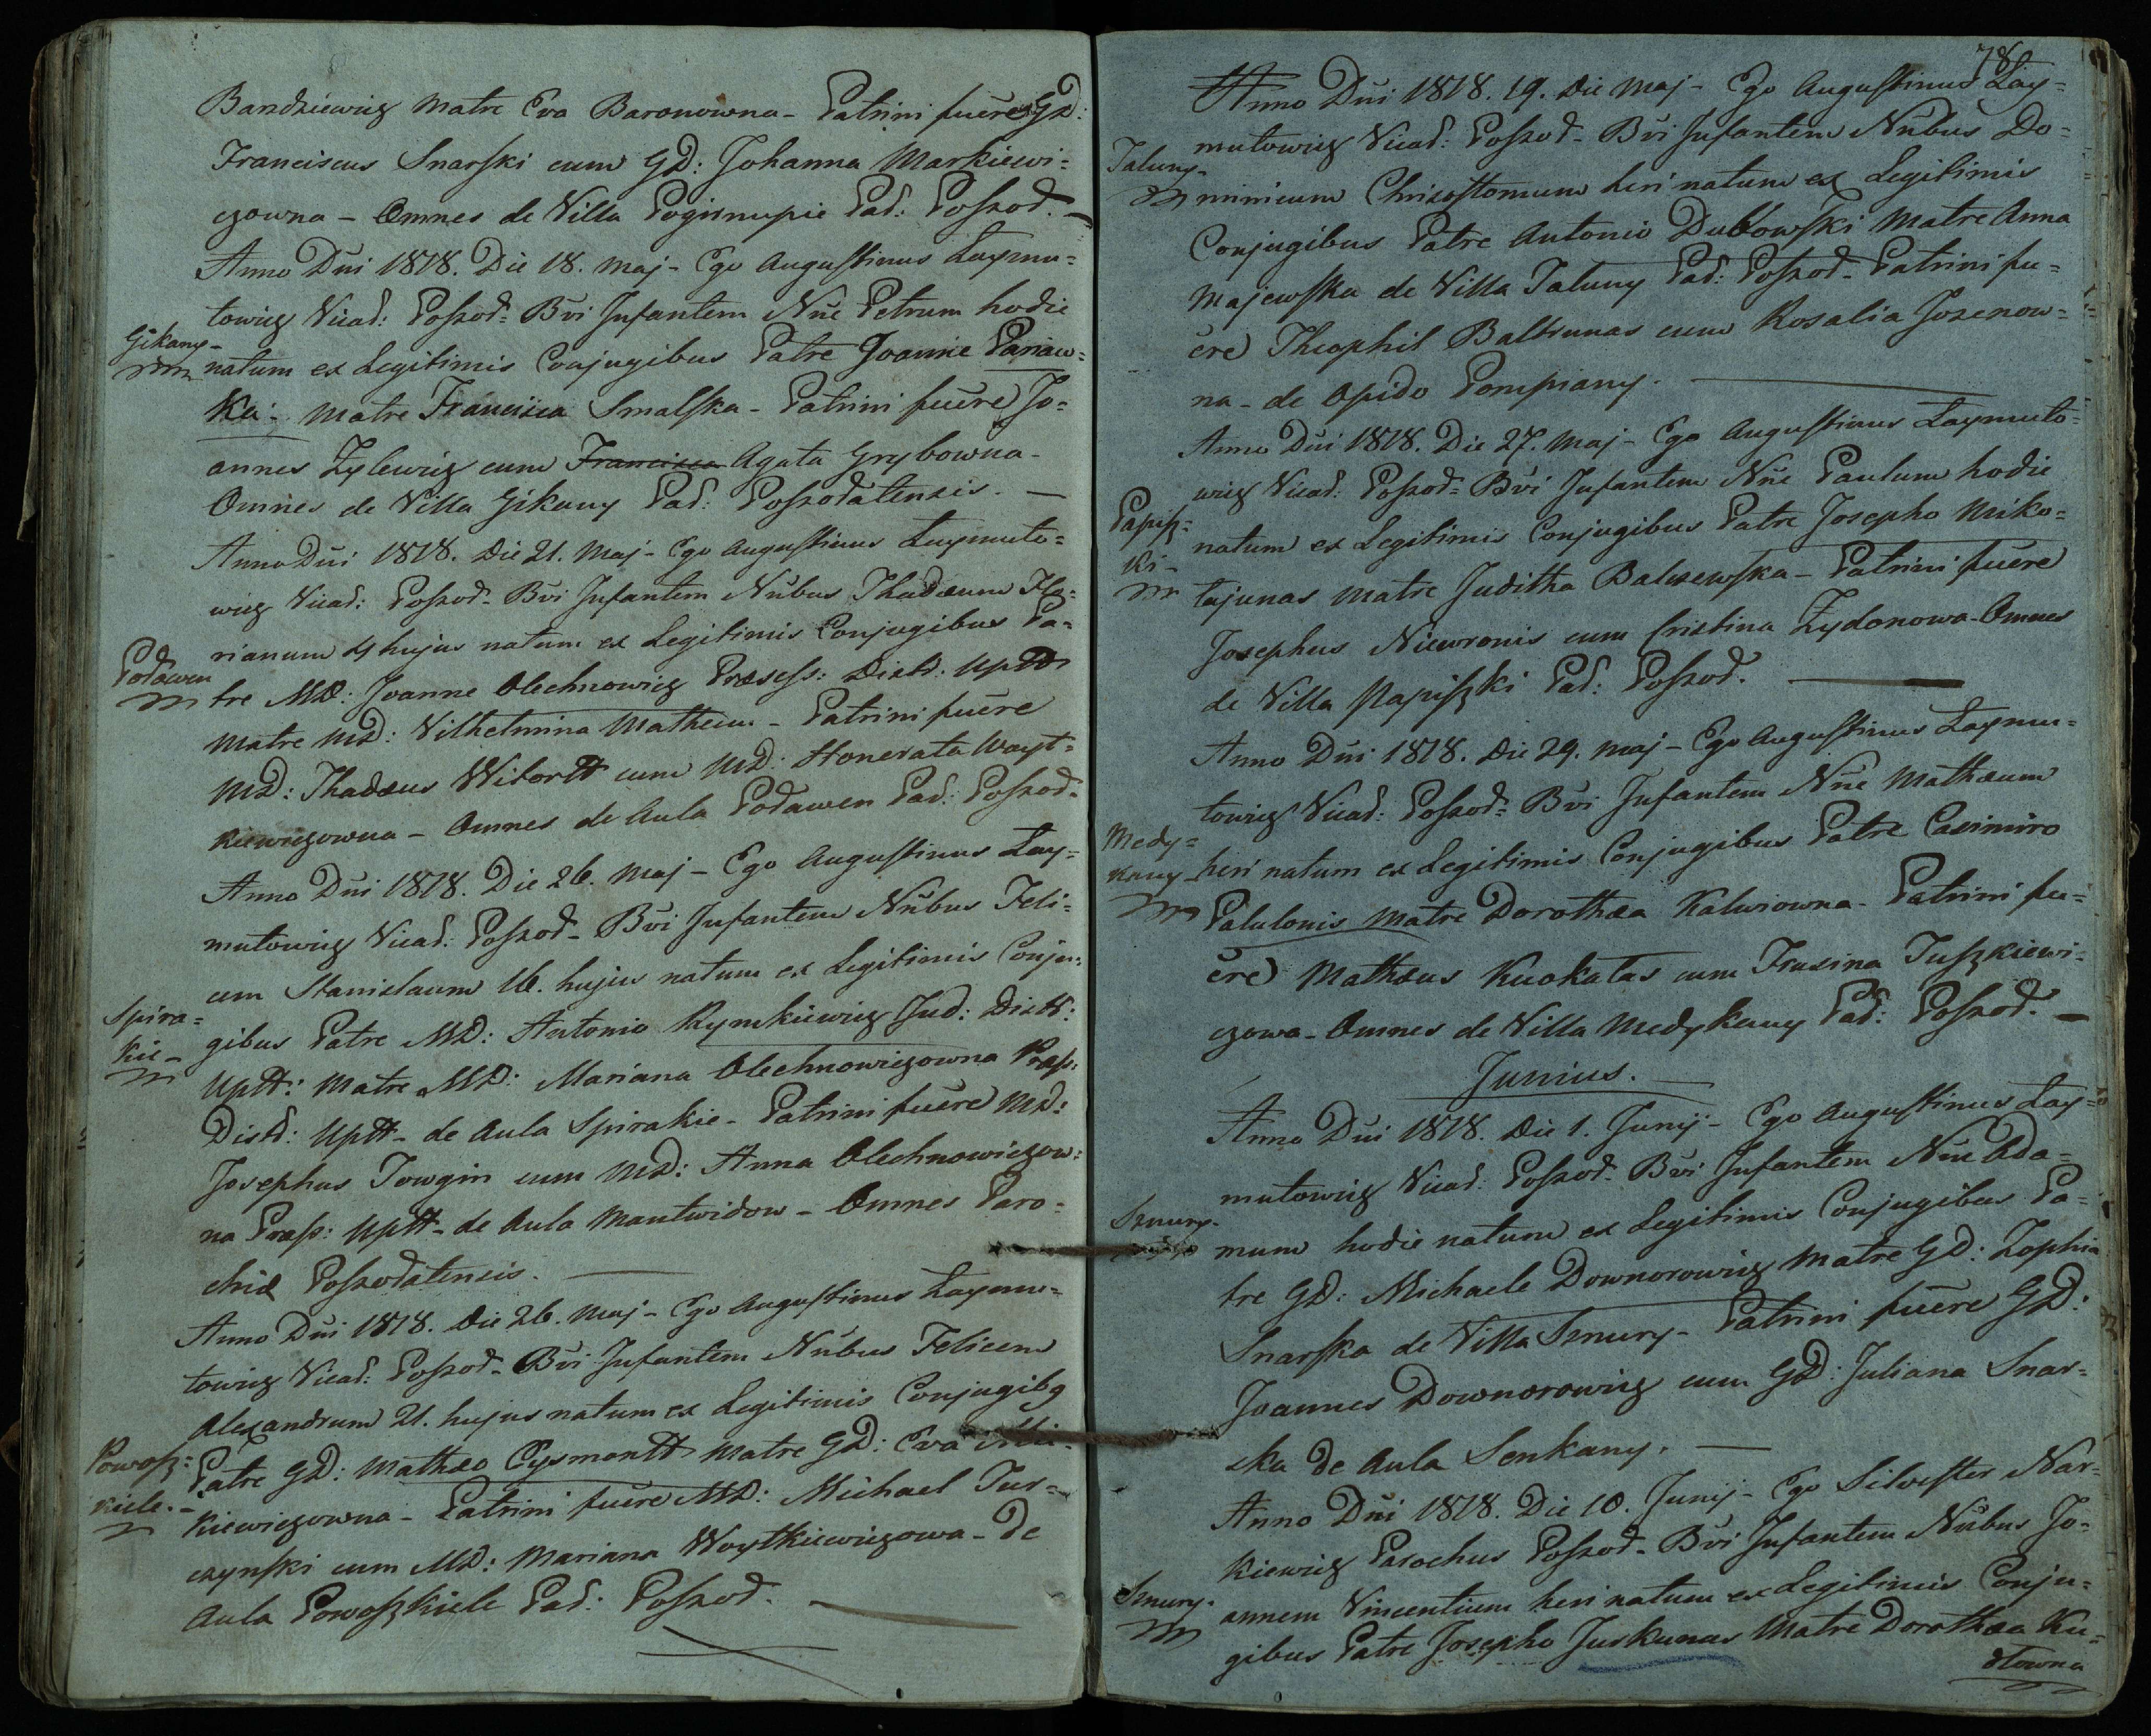 Bandziewicz Matre Eva Baronowna - Patrini fuere GD:
Franciscus Snarski cum GD: Johanna Markiewi=
czowna - Omnes de Villa Pogirnupie Par: Poszod. -
Anno Dni 1818. Die 18. Maj - Ego Augustinus Laymu=
towicz Vicar: Poszod= Bvi Infantem Nne Petrum hodie
Gikany -
natum ex Legitimis Conjugibus Patre Joanne Panaw=
ka - Matre Francisca Smalska - Patrini fuere Jo=
annes Zylewicz cum Francisca Agata Grybowna -
Omnes de Villa Gikany Par: Poszodatensis. -
Anno Dni 1818. Die 21. Maj - Ego Augustinus Laymuto=
wicz Vicar: Poszod - Bvi Infantem Nnbus Thadæum Flo=
rianum 4 hujus natum ex Legitimis Conjugibus Pa=
Podawen
tre MD: Joanne Olechnowicz Præsess: Distr: Uptt
Matre MD: Vilhelmina Matheim - Patrini fuere
MD: Thadæus Witortt cum MD: Honerata Woyt=
kiewiczowna - Omnes de Aula Podawen Par: Poszod.
Anno Dni 1818. Die 26. Maj - Ego Augustinus Lay=
mutowicz Vicar: Poszod - Bvi Infantem Nnbus Feli=
cem Stanislaum 16. hujus natum ex Legitimis Conju=
Spira=
kie -
gibus Patre MD: Antonio Rymkiewicz Jud: Distr:
Uptt: Matre MD: Mariana Olechnowiczowna Præs:
Distr: Uptt - de Aula Spirakie - Patrini fuere MD:
Josephus Jowgin cum MD: Anna Olechnowiczow=
na Præs: Uptt - de Aula Mantwidow - Omnes Paro=
chiæ Poszodatensis.
Anno Dni 1818. Die 26. Maj - Ego Augustinus Laymu=
towicz Vicar: Poszod - Bvi Infantem Nnbus Felicem
Alexandrum 21. hujus natum ex Legitimis Conjugibq
Powosz=
kiele. -
Patre GD: Mathæo Eysmontt Matre GD: Eva Mic=
kiewiczowna - Patrini fuere MD: Michael Jur=
czynski cum MD: Mariana Woytkiewiczowa - de
Aula Powoszkiele Par: Poszod.
78
Anno Dni 1818. 19. Die Maj - Ego Augustinus Lay=
mutowicz Vicar: Poszod - Bvi Infantem Nnbus Do=
Taluny -
minicum Chrizostomum heri natum ex Legitimis
Conjugibus Patre Antonio Dubowski Matre Anna
Majewska de Villa Taluny Par: Poszod - Patrini fu=
ere Theophil Baltrunas cum Rosalia Jozenow=
na - de Opido Pompiany.
Anno Dni 1818. Die 27. Maj - Ego Augustinus Laymuto=
wicz Vicar: Poszod= Bvi Infantem Nne Paulum hodie
Papisz=
ki -
natum ex Legitimis Conjugibus Patre Josepho Miko=
tajunas Matre Juditha Balczewska - Patrini fuere
Josephus Niewronis cum Cristina Zydonowa - Omnes
de Villa Papiszki Par: Poszod.
Anno Dni 1818. Die 29. Maj - Ego Augustinus Laymu=
towicz Vicar: Poszod= Bvi Infantem Nne Mathæum
Medy=
kany -
heri natum ex Legitimis Conjugibus Patre Casimiro
Palulonis Matre Dorothæa Kalwiowna - Patrini fu=
ere Mathæus Kuokatas cum Fruzina Juszkiewi=
czowa - Omnes de Villa Medykany Par: Poszod. -
Junius.
Anno Dni 1818. Die 1. Junij - Ego Augustinus Lay=
mutowicz Vicar: Poszod - Bvi Infantem Nne Ada=
Sznury -
mum hodie natum ex Legitimis Conjugibus Pa=
tre GD: Michaele Downorowicz Matre GD: Zophia
Snarska de Villa Sznury - Patrini fuere GD:
Joannes Downorowicz cum GD: Juliana Snar=
ska de Aula Senkany. -
Anno Dni 1818. Die 10. Junij - Ego Silvester Nar=
kiewicz Parochus Poszod - Bvi Infantem Nnbus Jo=
Sznury.
annem Vincentium heri natum ex Legitimis Conju=
gibus Patre Josepho Juskunas Matre Dorothæa Ku=
dtowna